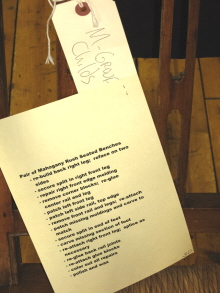 M-Gran
Childs
Pair of Mahogany Rush Seated Benches
- re-build back right leg; reface on two
sides
- secure split in right front leg
- repair right front edge molding
- remove corner blocks; re-glue
center rail and leg
- patch left front leg
- patch left side rail, top edge
- remove front rail and legs; re-attach
- patch missing moldings and carve to
match
- secure split in end of feet
- carve missing section of foot
- re-attach right front leg; spline as
necessary
- re-glue back rail joints
- re-attach glue blocks
- color out all repairs
- polish and wax